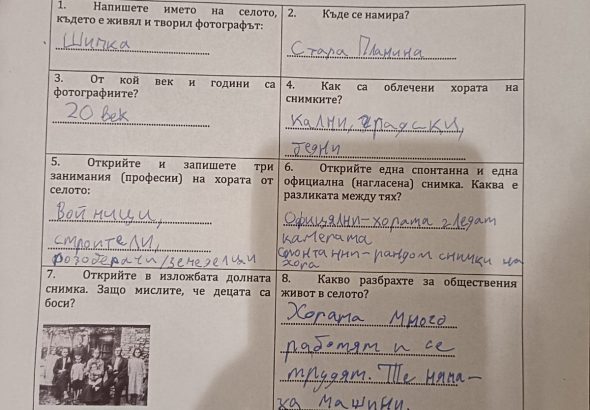 1. Напишете името на селото,
където е живял и творил фотографът:
Шипка
2. Къде се намира?
Стара Планина
3. От кой век и години са
фотографиите?
20 век
4. Как са облечени хората на
снимките?
кални, градски,
бедни
5. Открийте и запишете три
занимания (професии) на хората от
селото:
Войници,
строители,
розоберачи/земеделци
6. Открийте една спонтанна и една
официална (нагласена) снимка. Каква е
разликата между тях?
Официялни-хората гледат
камерата
Спонтанни-рандом снимки на
хора
7. Открийте в изложбата долната
снимка. Защо мислите, че децата са
боси?
8. Какво разбрахте за обществения
живот в селото?
Хората много
работят и се
трудят. Те няма-
ха машини.